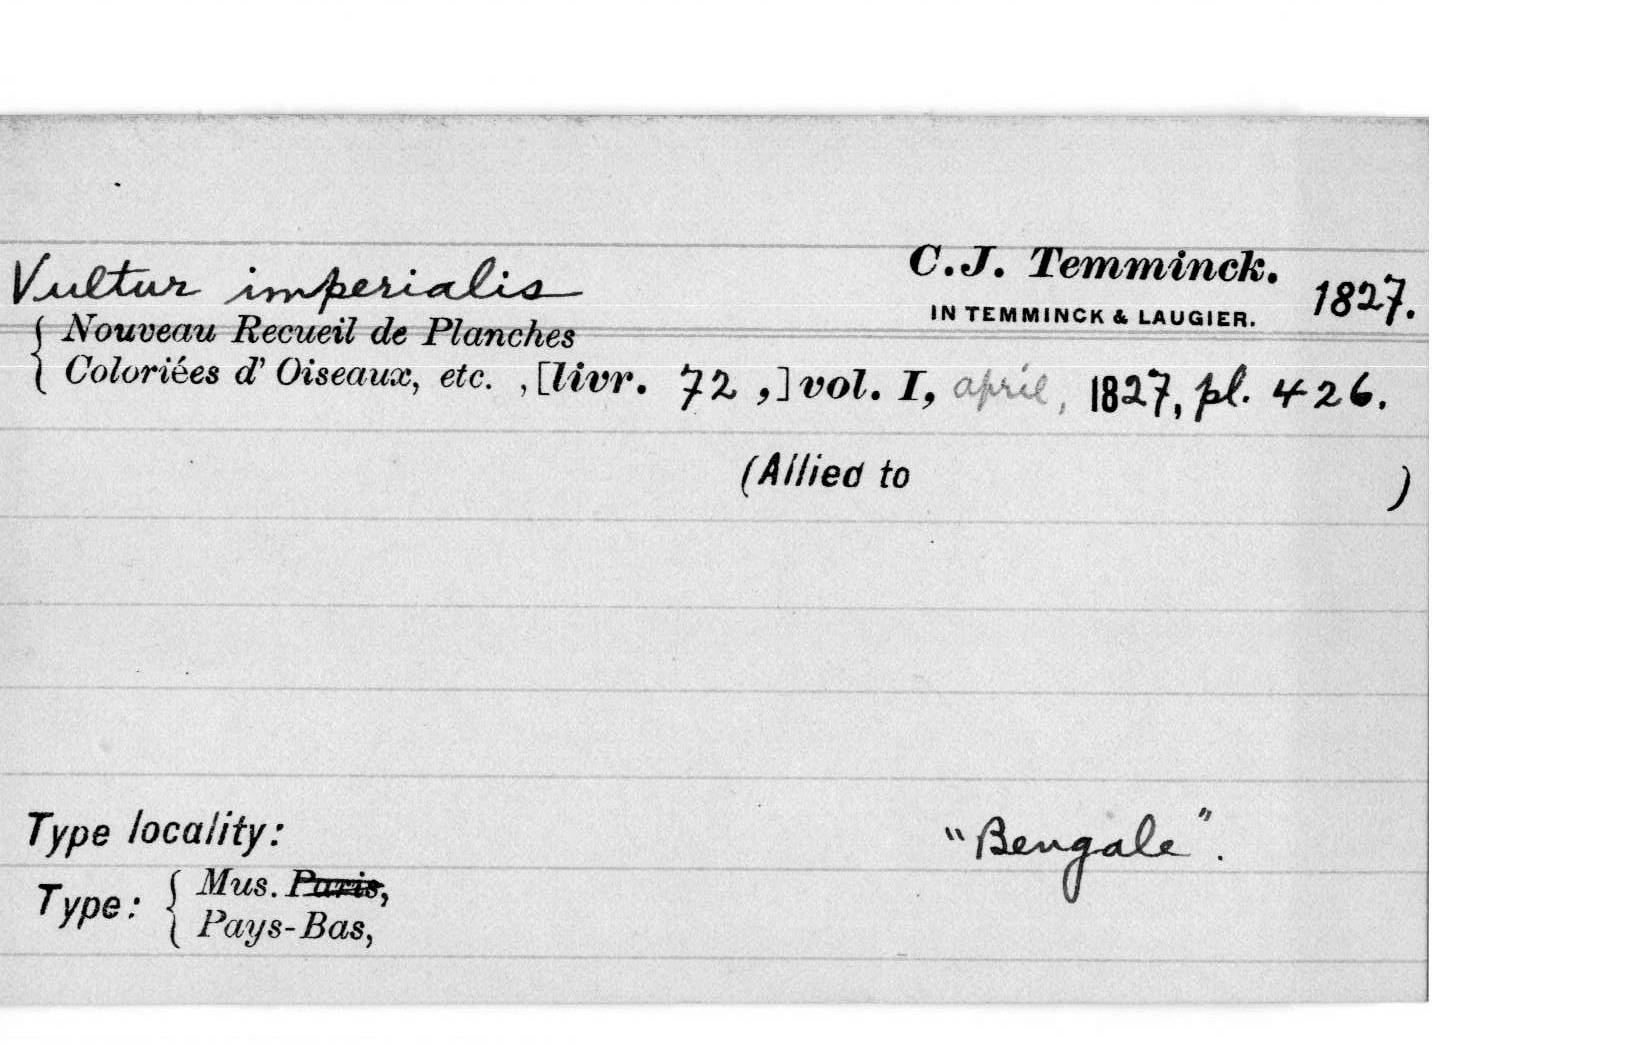 Vultur imperialis C.J. Temminck. 1827.
IN TEMMINCK & LAUGIER.
{ Nouveau Recueil de Planches
Coloriées d' Oiseaux, etc. , [livr. 72 ,] vol. I, april, 1827, pl. 426.
(Allied to )
Type locality: "Bengale".
Type: { Mus. Paris,
Pays-Bas,